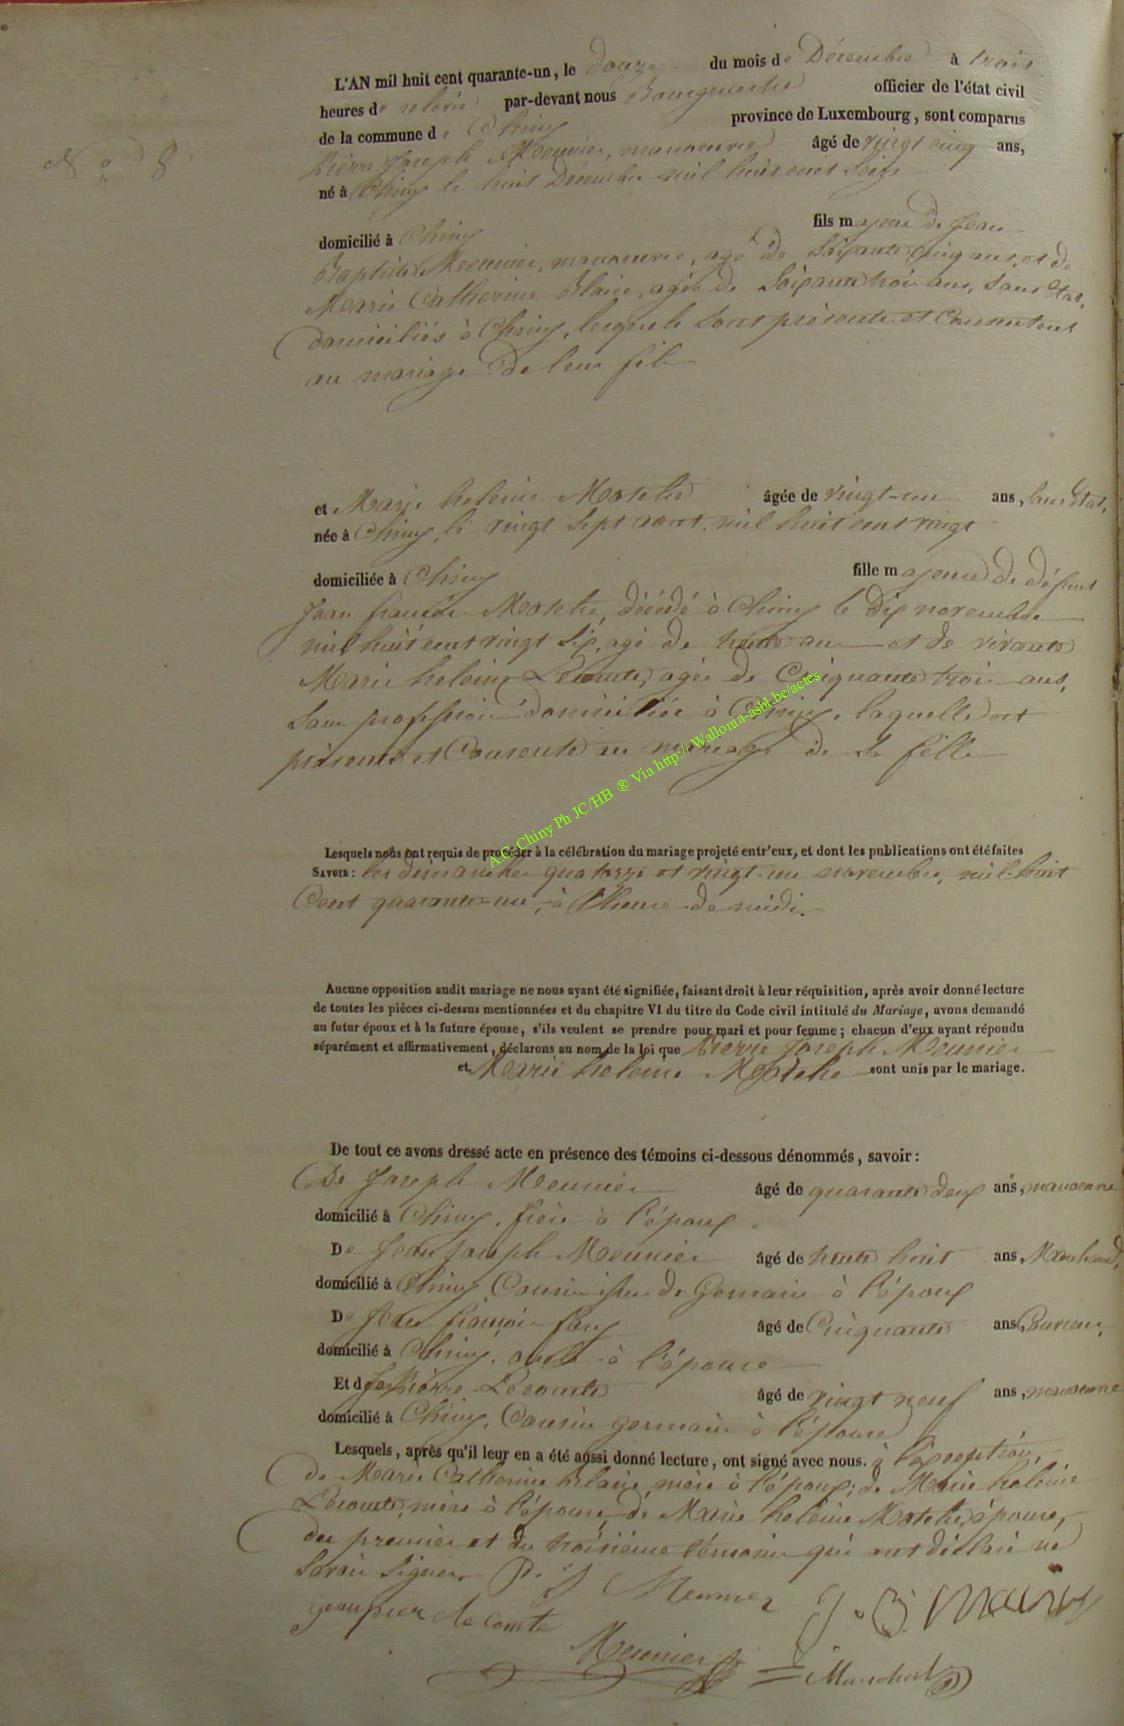 L'AN mil huit cent quarante-un, le douze du mois de Décembre à trois
heures de relevée par-devant nous Bourgmestre officier de l'état civil
de la commune de Chiny province de Luxembourg, sont comparus
N° 8
Pierre Joseph Meunier, manoeuvre âgé de vingt cinq ans,
né à Chiny le huit Décembre mil huit cent seize
domicilié à Chiny fils majeur de Jean
Baptiste Meunier, manoeuvre, agé de soixante cinq ans, et de
Marie Catherine Blaise, agée de soixante trois ans, sans état,
domiciliés à Chiny, lesquels sont présents et consentent
au mariage de leur fils
et Marie heleine âgée de vingt-un ans, sans état,
née à Chiny, le vingt sept aout, mil huit cent vingt
domiciliée à Chiny fille majeure de défunt
Jean françois décédé à Chiny le dix novembre
mil huit cent vingt six, agé de trente ans et de vivante
Marie heleine Lecomte, agée de Cinquante trois ans,
sans profession domiciliée à Chiny, laquelle est
présente et Consente au mariage de sa fille
A.C. Chiny Ph JC/HB ® Via http://Wallonia-asbl.be/actes
Lesquels nous ont requis de procéder à la célébration du mariage projeté entr'eux, et dont les publications ont été faites
SAVOIR : les dimanches quatorze et vingt-un novembre, mil huit
Cent quarante-un, à l'heure de midi.
Aucune opposition audit mariage ne nous ayant été signifiée, faisant droit à leur réquisition, après avoir donné lecture
de toutes les pièces ci-dessus mentionnées et du chapitre VI du titre du Code civil intitulé du Mariage, avons demandé
au futur époux et à la future épouse, s'ils veulent se prendre pour mari et pour femme ; chacun d'eux ayant répondu
séparément et affirmativement, déclarons au nom de la loi que Pierre Joseph Meunier
et Marie heleine sont unis par le mariage.
De tout ce avons dressé acte en présence des témoins ci-dessous dénommés, savoir :
De Joseph Meunier âgé de quarante deux ans, manoeuvre
domicilié à Chiny, frère à l'époux.
De Jean Joseph Meunier âgé de trente huit ans, Marchand,
domicilié à Chiny, Cousin issu de Germain à l'époux
De Jean françois âgé de Cinquante ans,
domicilié à Chiny, oncle à l'épouse
Et de Jean Pierre Lecomte âgé de vingt neuf ans, manoeuvre
domicilié à Chiny, Cousin germain à l'épouse
Lesquels, après qu'il leur en a été aussi donné lecture, ont signé avec nous. à l'exception,
de Marie Catherine Blaise, mère à l'époux; de Marie heleine
Lecomte, mère à l'épouse, de Marie heleine épouse,
du premier et du troisième témoin qui ont déclaré ne
savoir signer.
P. J Meunier
jean pier le comte
Meunier